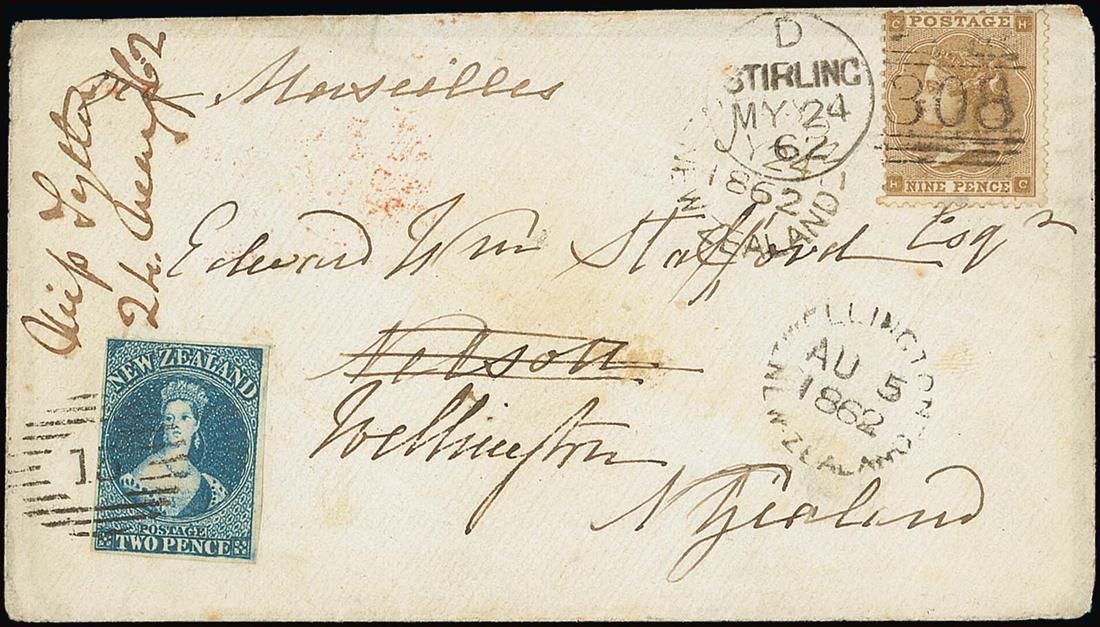 Miss Tytler
24 May 62
via Marseilles
D
STIRLING
MY 24
62
JY
1862
NEW ZEALAND
G POSTAGE H
308
H NINE PENCE G
Edward Wm Stafford Esqr
Nelson
Wellington
N Zealand
WELLINGTON
AU 5
1862
NEW ZEALAND
NEW ZEALAND
POSTAGE
TWO PENCE